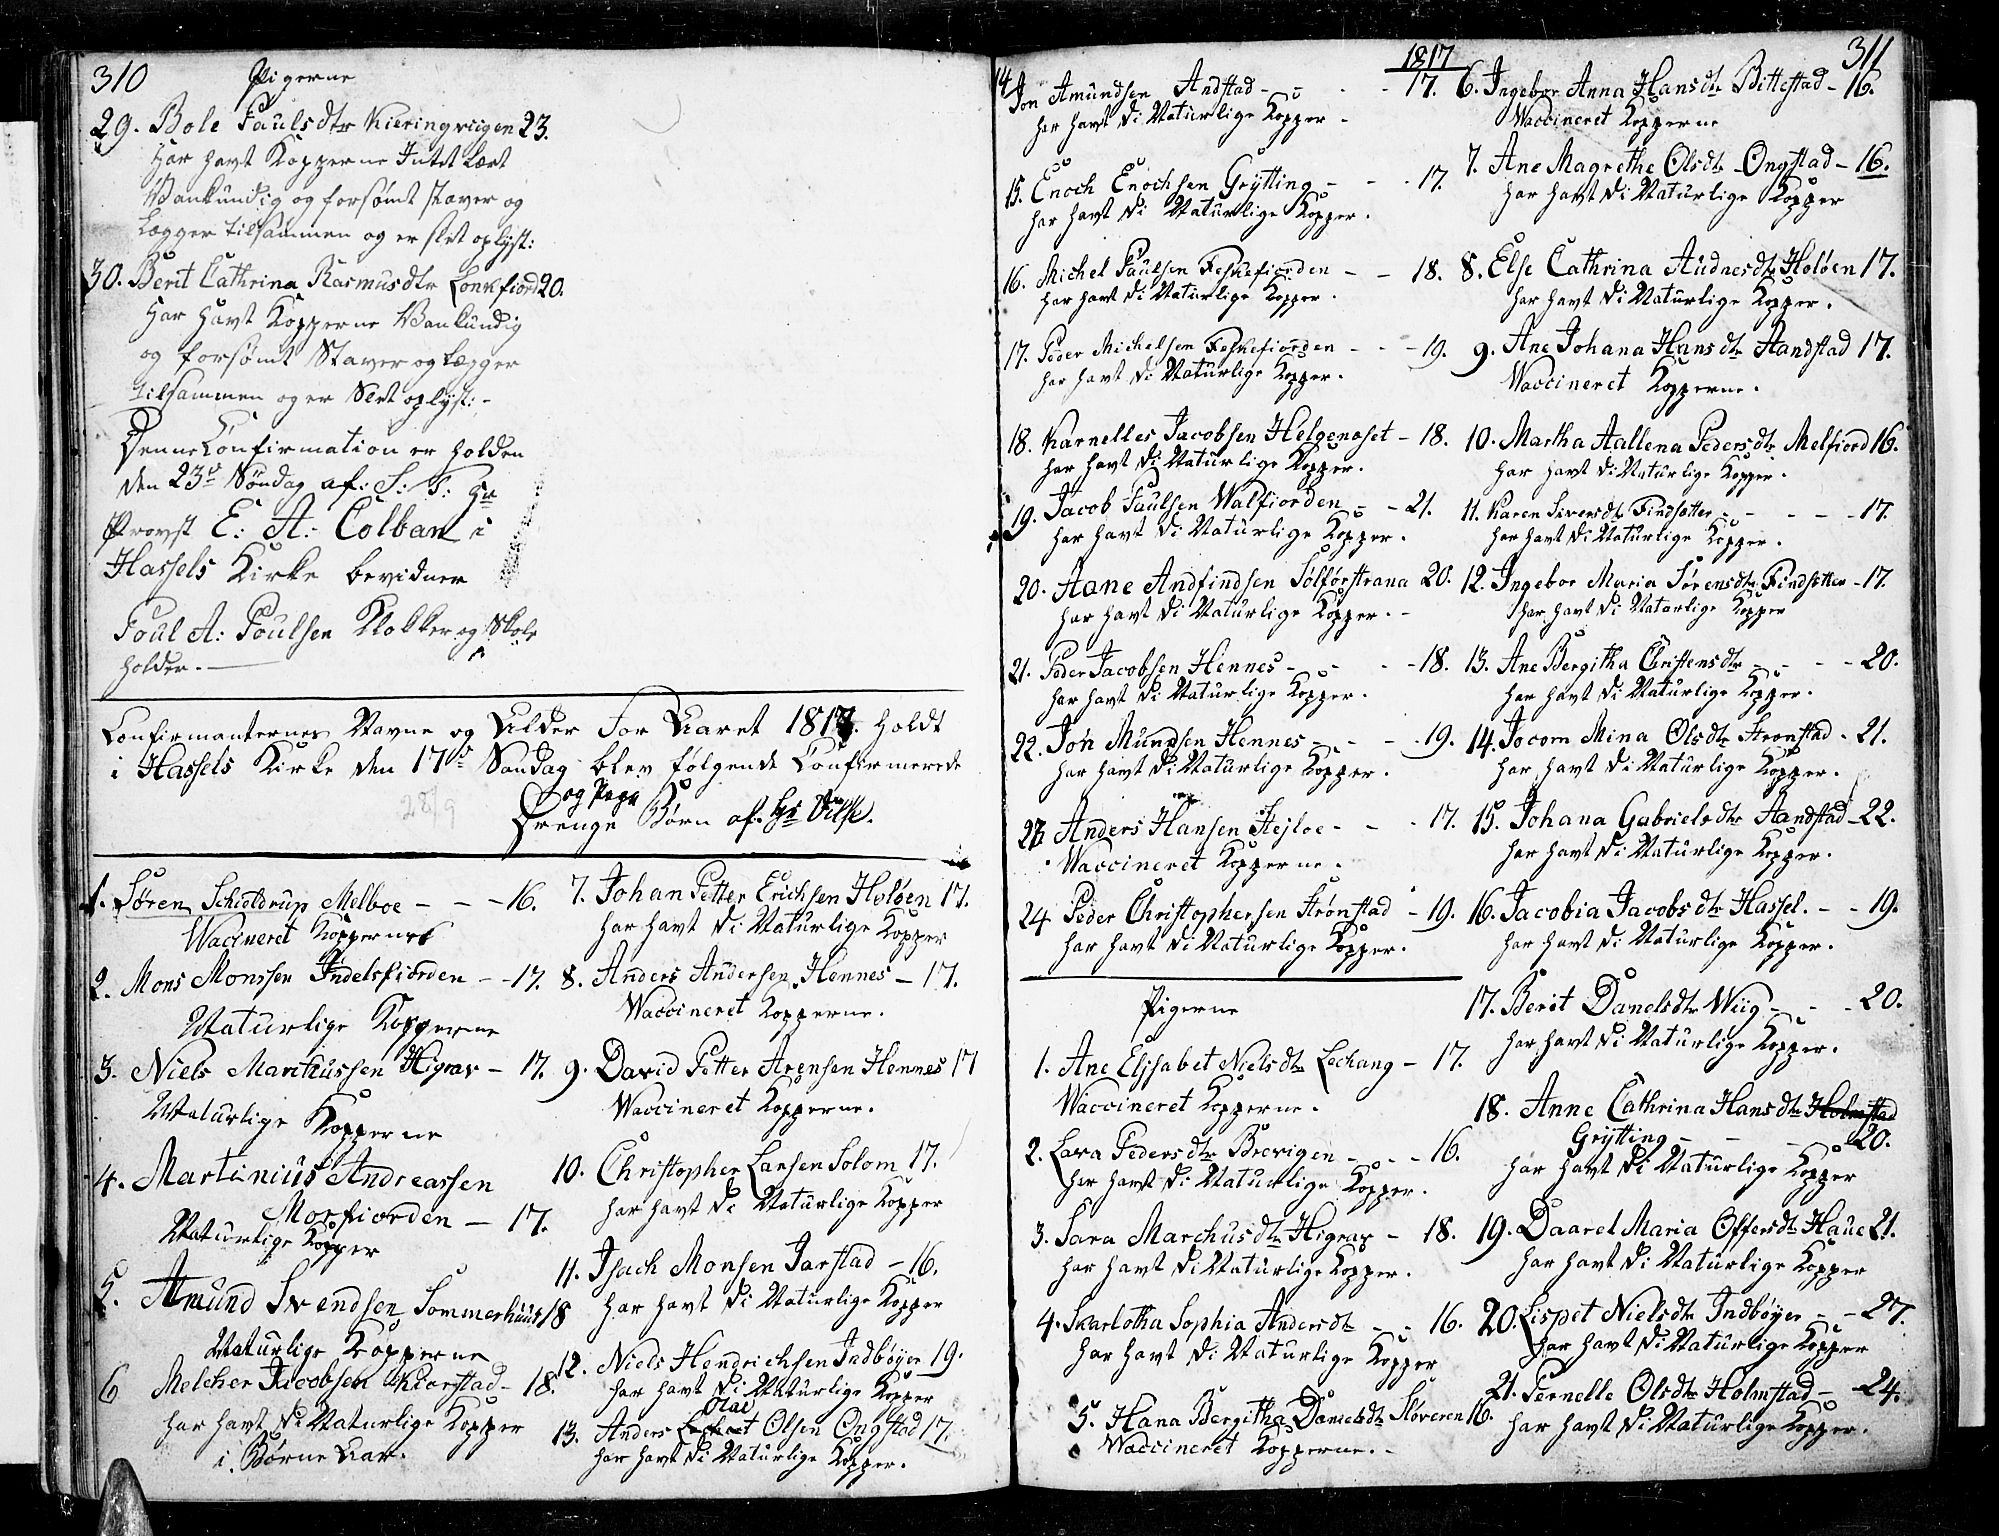 310
Pigerne
29. Bole Paulsdtr Kieringviigen 23.
Har havt Kopperne Intet Lært
Vankundig og forsømt staver og
Lægger tilsammen og er slet oplyst:
30. Berit Cathrina Rasmusdtr Lonkfiord 20.
Har havt Kopperne Vankundig
og forsømt Staver og Lægger
tilsammen og er Slet oplyst:-
Denne Confirmation er holden
den 23de Søndag af: S: T: Hr
Provst E: A: Colban i
Hassels Kirke bevidner
Poul A: Poulsen Klokker og Skole
holder.
Confirmanternes Navne og Alder for Aaret 1817. holdt
i Hassels Kirke den 17de Søndag blev følgende Confirmerede
og Pige
Drenge Børn af Hr Vilse.
28/9
1. Søren Schieldrup Melboe - - - 16.
Vaccineret Kopperne
2. Mons Monssen Indelsfiorden - - 17.
Naturlige Kopperne
3. Niels Markussen Higrav - 17.
Naturlige Kopperne
4. Martinius Andreassen
Morfiorden - 17.
Naturlige Kopper
5. Amund Svendsen Sommerhuus 18
Naturlige Kopperne
6 Melcher Jacobsen Kiorstad - 18.
har havt di Naturlige Kopper
i Børne Aar.
7. Johan Petter Erichsen Holøen 17.
har havt di Naturlige Kopper
8. Anders Andersen Hennes - 17.
Vaccineret Kopperne.
9. David Petter Arensen Hennes 17
Vaccineret Kopperne.
10. Christopher Larsen Solom 17.
har havt di Naturlige Kopper
11. Isach Monsen Jarstad - 16.
har havt di Naturlige Kopper
12. Niels Hendrichsen Indbøyer 19.
har havt di Naturlige Kopper
Olai
13. Anders Olsen Ongstad 17.
har havt di Naturlige Kopper.
1817
311
14 Jon Amundsen Andstad - - - - 17.
har havt di Naturlige Kopper -
15. Enoch Enochsen Grytting - - - 17.
har havt di Naturlige Kopper.
16. Michel Paulsen Feskefiorden - - 18.
har havt di Naturlige Kopper.
17. Peder Michelsen Feskefiorden - - - 19.
har havt di Naturlige Kopper.
18. Karnelles Jacobsen Helgenaset - 18.
har havt di Naturlige Kopper.
19. Jacob Paulsen Walfiorden - - 21.
har havt di Naturlige Kopper.
20. Aane Andfindsen Sølførstrana 20.
har havt di Naturlige Kopper. -
21. Peder Jacobsen Hennes - - - - 18.
har havt di Naturlige Kopper.
22. Jon Mundsen Hennes - - - - 19.
har havt di Naturlige Kopper.
23 Anders Hansen Hejloe - - - 17.
Vaccineret Kopperne.
24 Peder Christophersen Strønstad - 19.
har havt di Naturlige Kopper.
Pigerne
1. Ane Elisabet Nielsdtr Lechang - 17.
Vaccineret Kopperne.
2. Lava Pedersdtr Brevigen - - - 16.
har havt di Naturlige Kopper.
3. Sara Marchusdtr Higrav - 18.
har havt di Naturlige Kopper.
4. Skarlotha Sophia Andersdtr - - 16.
har havt di Naturlige Kopper
5. Hana Bergitha Danielsdtr Støveren 16.
Vaccineret Kopperne. -
6. Ingebor Anna Hansdtr Bittestad - 16.
Vaccineret Kopperne
7. Ane Magrethe Olsdtr Ongstad - 16.
har havt di Naturlige Kopper
8. Else Cathrina Audnesdtr Holøen 17.
har havt di Naturlige Kopper.
9. Ane Johana Hansdtr Sandstad 17.
Vaccineret Kopperne.
10. Martha Aallena Pedersdtr Melfiord 16.
har havt di Naturlige Kopper.
11. Karen Siversdtr Findsætter - - - - - 17.
har havt di Naturlige Kopper.
12. Ingebor Maria Sørensdtr Findsetter - 17.
har havt di Naturlige Kopper
13. Ane Bergitha Christensdtr - - - - 20.
har havt di Naturlige Kopper.
14. Jocom Mina Olsdtr Strønstad - 21.
har havt di Naturlige Kopper.
15. Johana Gabrielsdtr Sandstad - 22.
har havt di Naturlige Kopper.
16. Jacobia Jacobsdtr Hassel. - - 19.
har havt di Naturlige Kopper.
17. Berit Danelsdtr Wiig - - - 20.
har havt di Naturlige Kopper.
18. Anne Cathrina Hansdtr Holmstad
Grytting - - - 20.
har havt di Naturlige Kopper
19. Daarel Maria Offersdtr Haue 21.
har havt di Naturlige Kopper
20. Lispet Nielsdtr Indbøyer - - 27.
har havt di Naturlige Kopper
21. Pernelle Olsdtr Holmstad - - 24.
har havt di Naturlige Kopper.